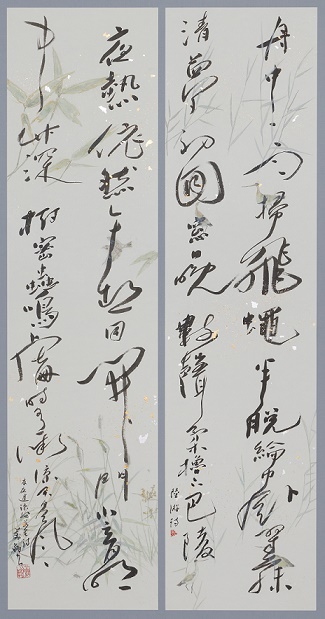 舟中一雨掃飛蠅半脫綸巾臥翠藤
清夢初回窗日晚數聲柔櫓下巴陵
陸游詩
夜熱依然午熱同開門小立月明
中竹深樹密蟲鳴處時有微涼不是風